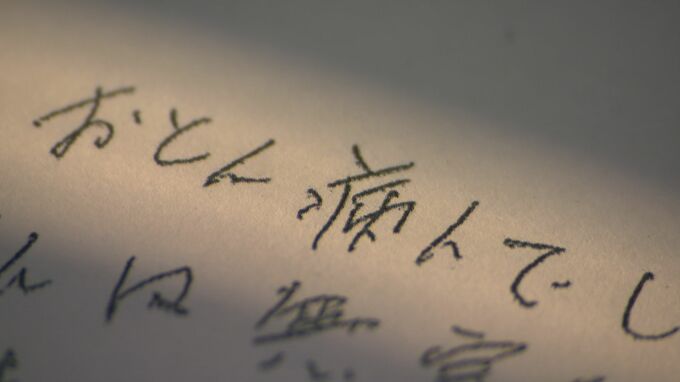 おとん病んでし
んは無言